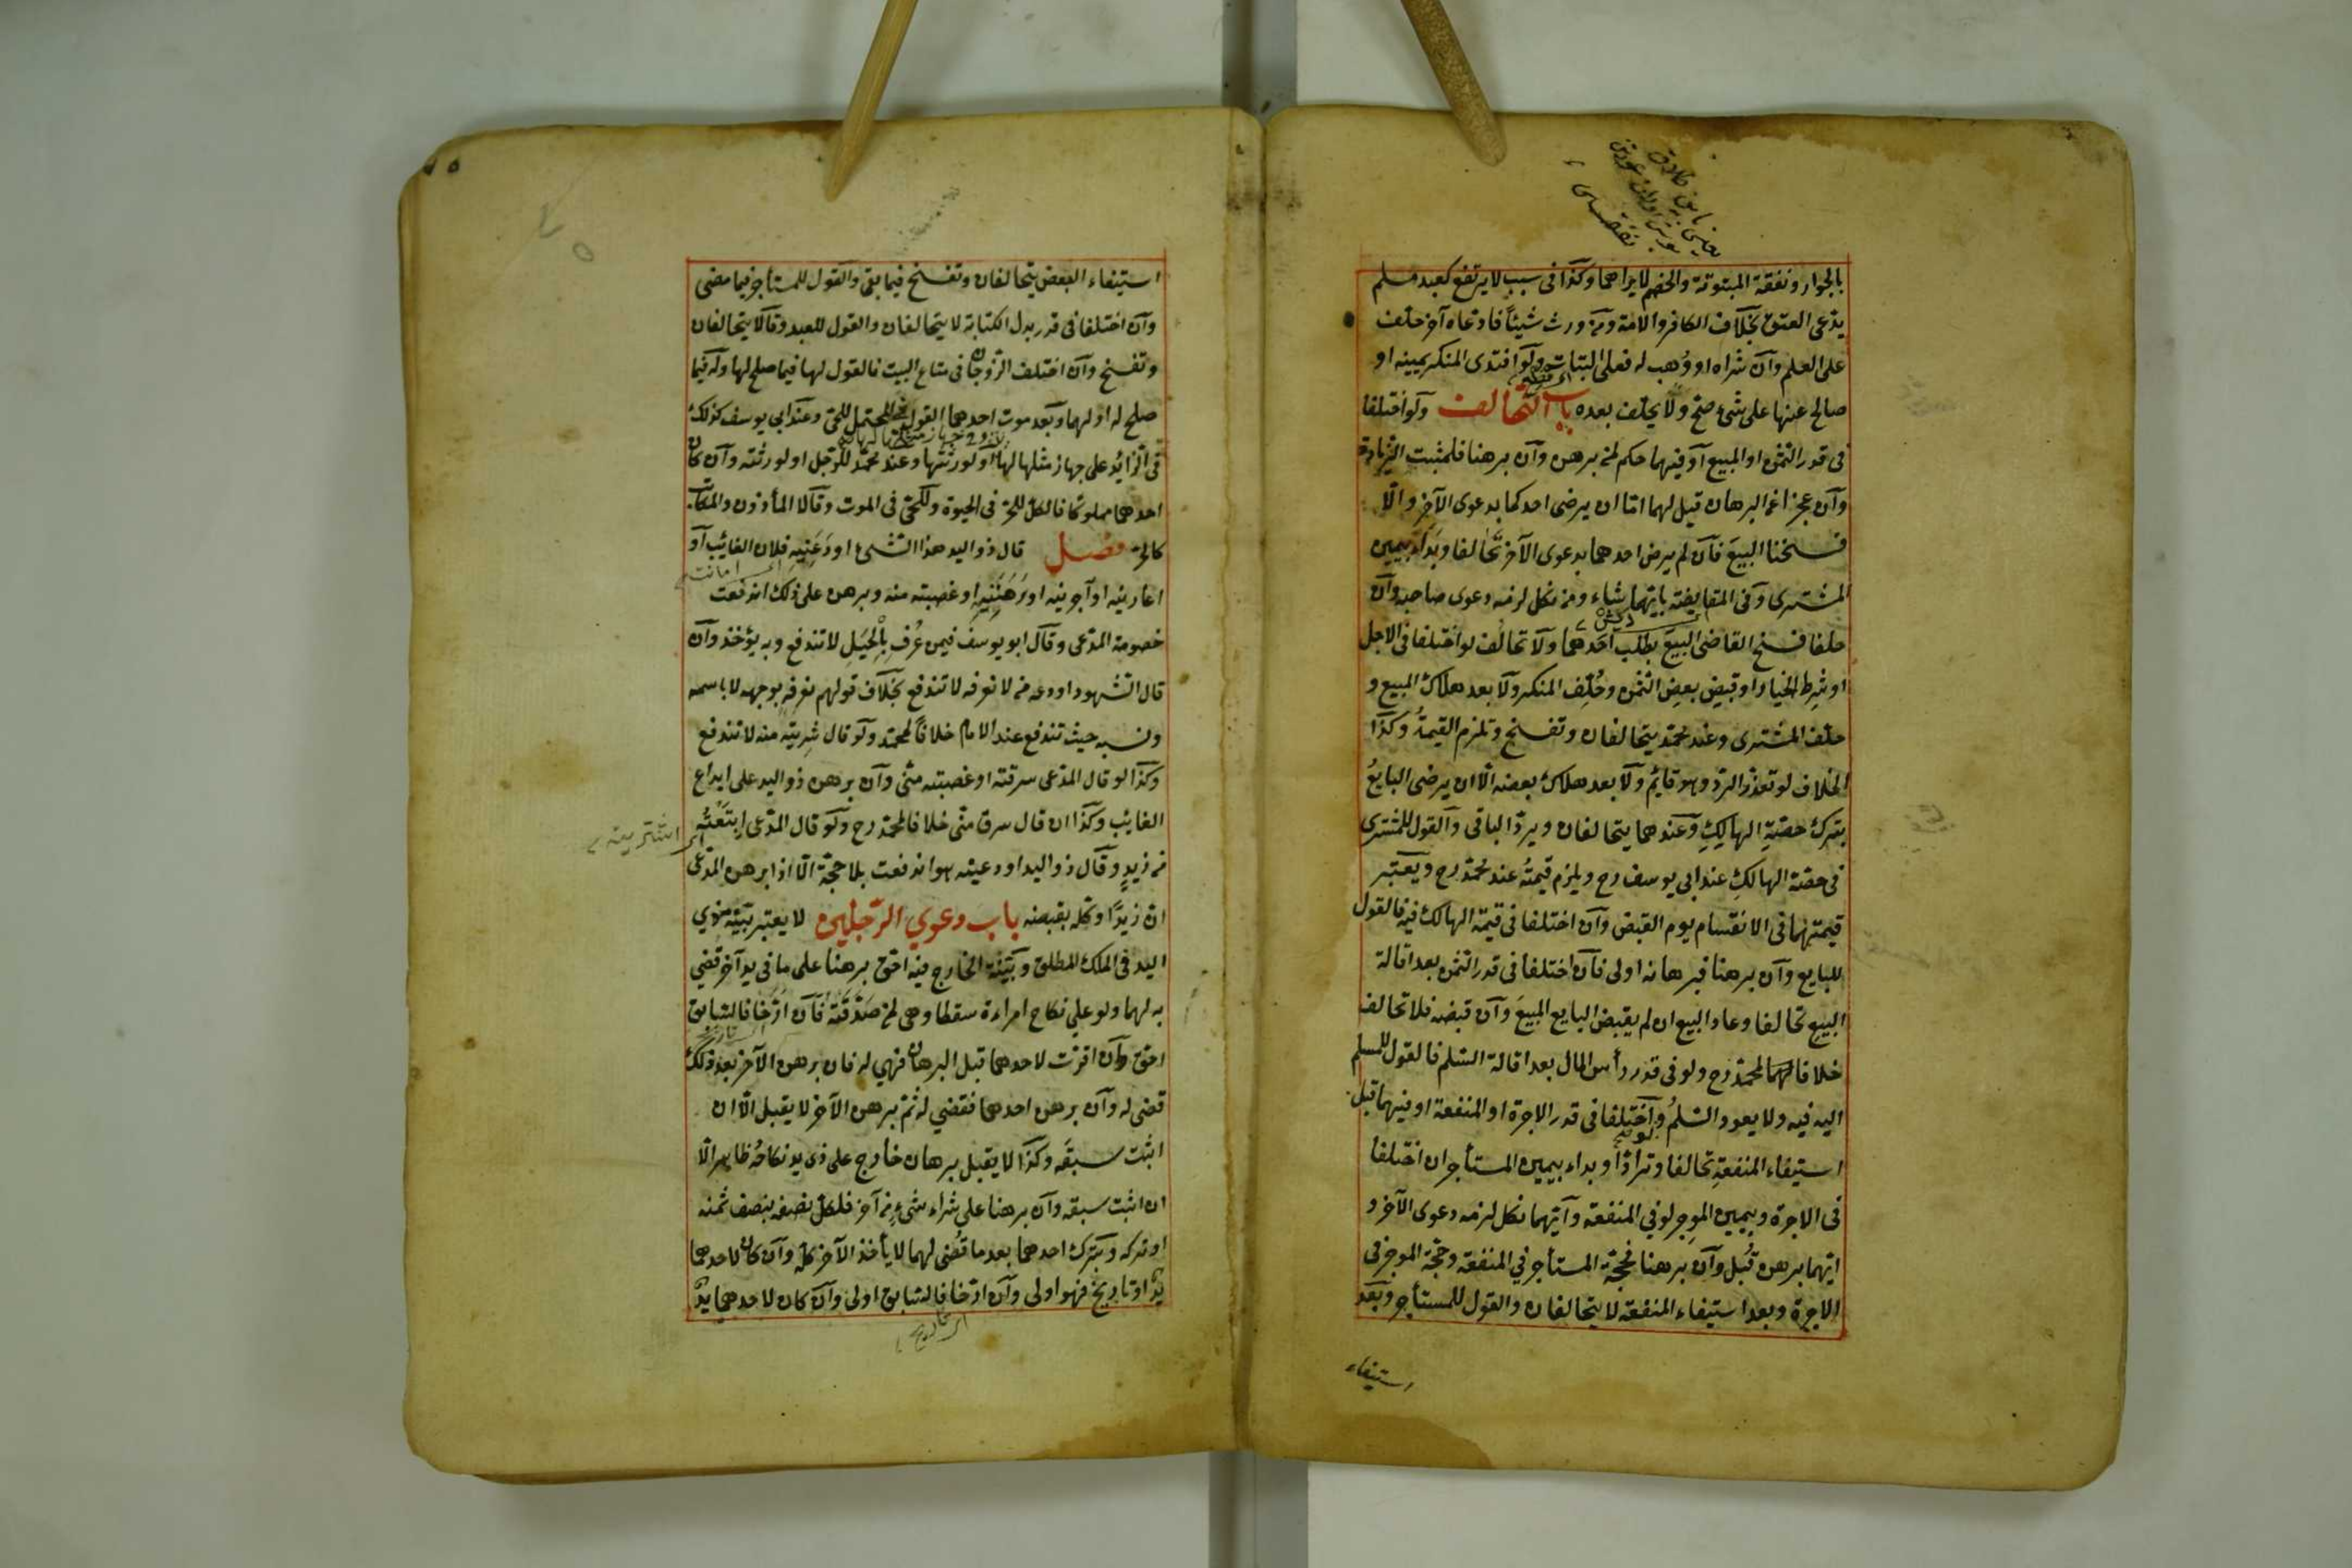 بالجوار ونفقة المبتوتة والخصم لا يراهما وكذا في سبب لا يرتفع كعبد مسلم
يدعى العتق بخلاف الكافر والامة ومن ورث شيئاً فادعاه آخر حلف
على العلم وآن شراه او وُهب له فعلى البتات ولو افتدى المنكر يمينه او
صالح عنها على شئ صح ولا يحلف بعده باب التحالف ولو اختلفا
في قدر الثمن او المبيع او فيهما حكم لمن برهن وآن برهنا فلمثبت الزيادة
وآن عجزا عن البرهان قيل لهما اما ان يرضى احدكما بدعوى الآخر والّا
فسخنا البيع فآن لم يرض احدهما بدعوى الآخر تحالفا وبدأ بيمين
المشترى وفى المقايضة بايهما شاء ومن نكل لزمه دعوى صاحبه وآن
حلفا فسخ القاضى البيع بطلب احدهما ولا تحالف لو اختلفا فى الاجل
او شرط الخيار او قبض بعض الثمن وحُلّف المنكر ولا بعد هلاك المبيع و
حلف المشترى وعند محمّد يتحالفان وتفسخ وتلزم القيمة وكذا
الخلاف لو تعذر الرد وهو قايم ولا بعد هلاك بعضه الّا ان يرضى البايع
بترك حصّةِ الهالك وعندهما يتحالفان ويردّ الباقى والقول للمشترى
فى حصّة الهالكِ عند ابى يوسف رح ويلزم قيمتُه عند محمّد رح ويعتبر
قيمتهما فى الانقسام يوم القبض وآن اختلفا فى قيمة الهالك فيه فالقول
للبايع وآن برهنا فبرهانه اولى فآن اختلفا فى قدر الثمن بعد اقالة
البيع تحالفا وعاد البيع ان لم يقبض البايع المبيعَ وآن قبضه فلا تحالف
خلافا لمحمّد رح ولو فى قدر رأس المال بعد اقالة السّلم فالقول للمسلم
اليه فيه ولا يعود السّلمُ ولو اختلفا فى قدر الاجرة او المنفعة او فيهما قبل
استيفاء المنفعةِ تحالفا وترادّا وبداء بيمين المستأجر ان اختلفا
فى الاجرة وبيمين الموجر لو فى المنفعة وآيّهما نكل لزمه دعوى الآخر و
ايّهما برهن قُبل وآن برهنا فحجّة المستأجر في المنفعة وحجّة الموجر فى
الاجرة وبعد استيفاء المنفعة لا يتحالفان والقول للمستأجر وبعد
استيفاء
استيفاء البعض يتحالفان وتفسخ فيما بقى والقول للمستأجر فيما مضى
وآن اختلفا فى قدر بدل الكتابة لا يتحالفان والقول للعبد وقالا يتحالفان
وتفسخ وآن اختلف الزوجان فى متاع البيت فالقول لها فيما صلح لها وله فيما
صلح له او لهما وبعد موت احدهما القول فى المحتمل للحىّ وعند ابى يوسف كذلك
فى الزائد على جهاز مثلها لها او لورثتها وعند محمّد للرجل او لورثته وآن كان
احدهما مملوكا فالكلّ للحرّ فى الحيوة وللحىّ فى الموت وقالا المأذون والمكاتب
كالحرّ فصل قال ذو اليد هذا الشئ اودعنيه فلان الغائب او
اى امانت
اعارنيه او آجرنيه او رهننيه او غصبته منه وبرهن على ذلك اندفعت
خصومة المدّعى وقال ابو يوسف فيمن عُرف بالحيلِ لا تندفع وبه يؤخذ وآن
قال الشهود اودعه من لا نعرفه لا تندفع بخلاف قولهم نعرفه بوجهه لا باسمه
ونسبه حيث تندفع عند الامام خلافاً لمحمّد ولو قال شريته منه لا تندفع
وكذا لو قال المدّعى سرقته او غصبته منّى وآن برهن ذو اليد على ايداع
الغائب وكذا ان قال سرق منّى خلافا لمحمّد رح ولو قال المدّعى ابتعته
اى اشتريته
من زيدٍ وقال ذو اليد اودعنيه هو اندفعت بلا حجّة الّا اذا برهن المدّعى
ان زيدًا وكله بقبضه باب دعوي الرّجلين لا يعتبر بيّنة ذي
اليد فى الملك المطلق وبيّنة الخارج فيه احقّ برهنا على ما فى يد آخر قضي
به لهما ولو علي نكاح امراءة سقطا وهى لمن صدّقته فآن ارّخا فالسّابق
احقّ وآن اقرّت لاحدهما قبل البرهان فهي له فان برهن الآخر بعد ذلك
قضى له وآن برهن احدهما فقضي له ثمّ برهن الآخر لا يقبل الّا ان
اثبت سبقه وكذا لا يقبل برهان خارج على ذى يد نكاحُه ظاهر الّا
ان اثبت سبقه وآن برهنا على شراء شئ من آخر فلكلّ نصفه بنصف ثمنه
او تركه وبترك احدهما بعد ما قُضى لهما لا يأخذ الآخر كلّه وآن كان لاحدهما
يدٌ او تاريخ فهو اولى وآن ارّخا فالسّابق اولى وآن كان لاحدهما يدٌ
اى تاريخ